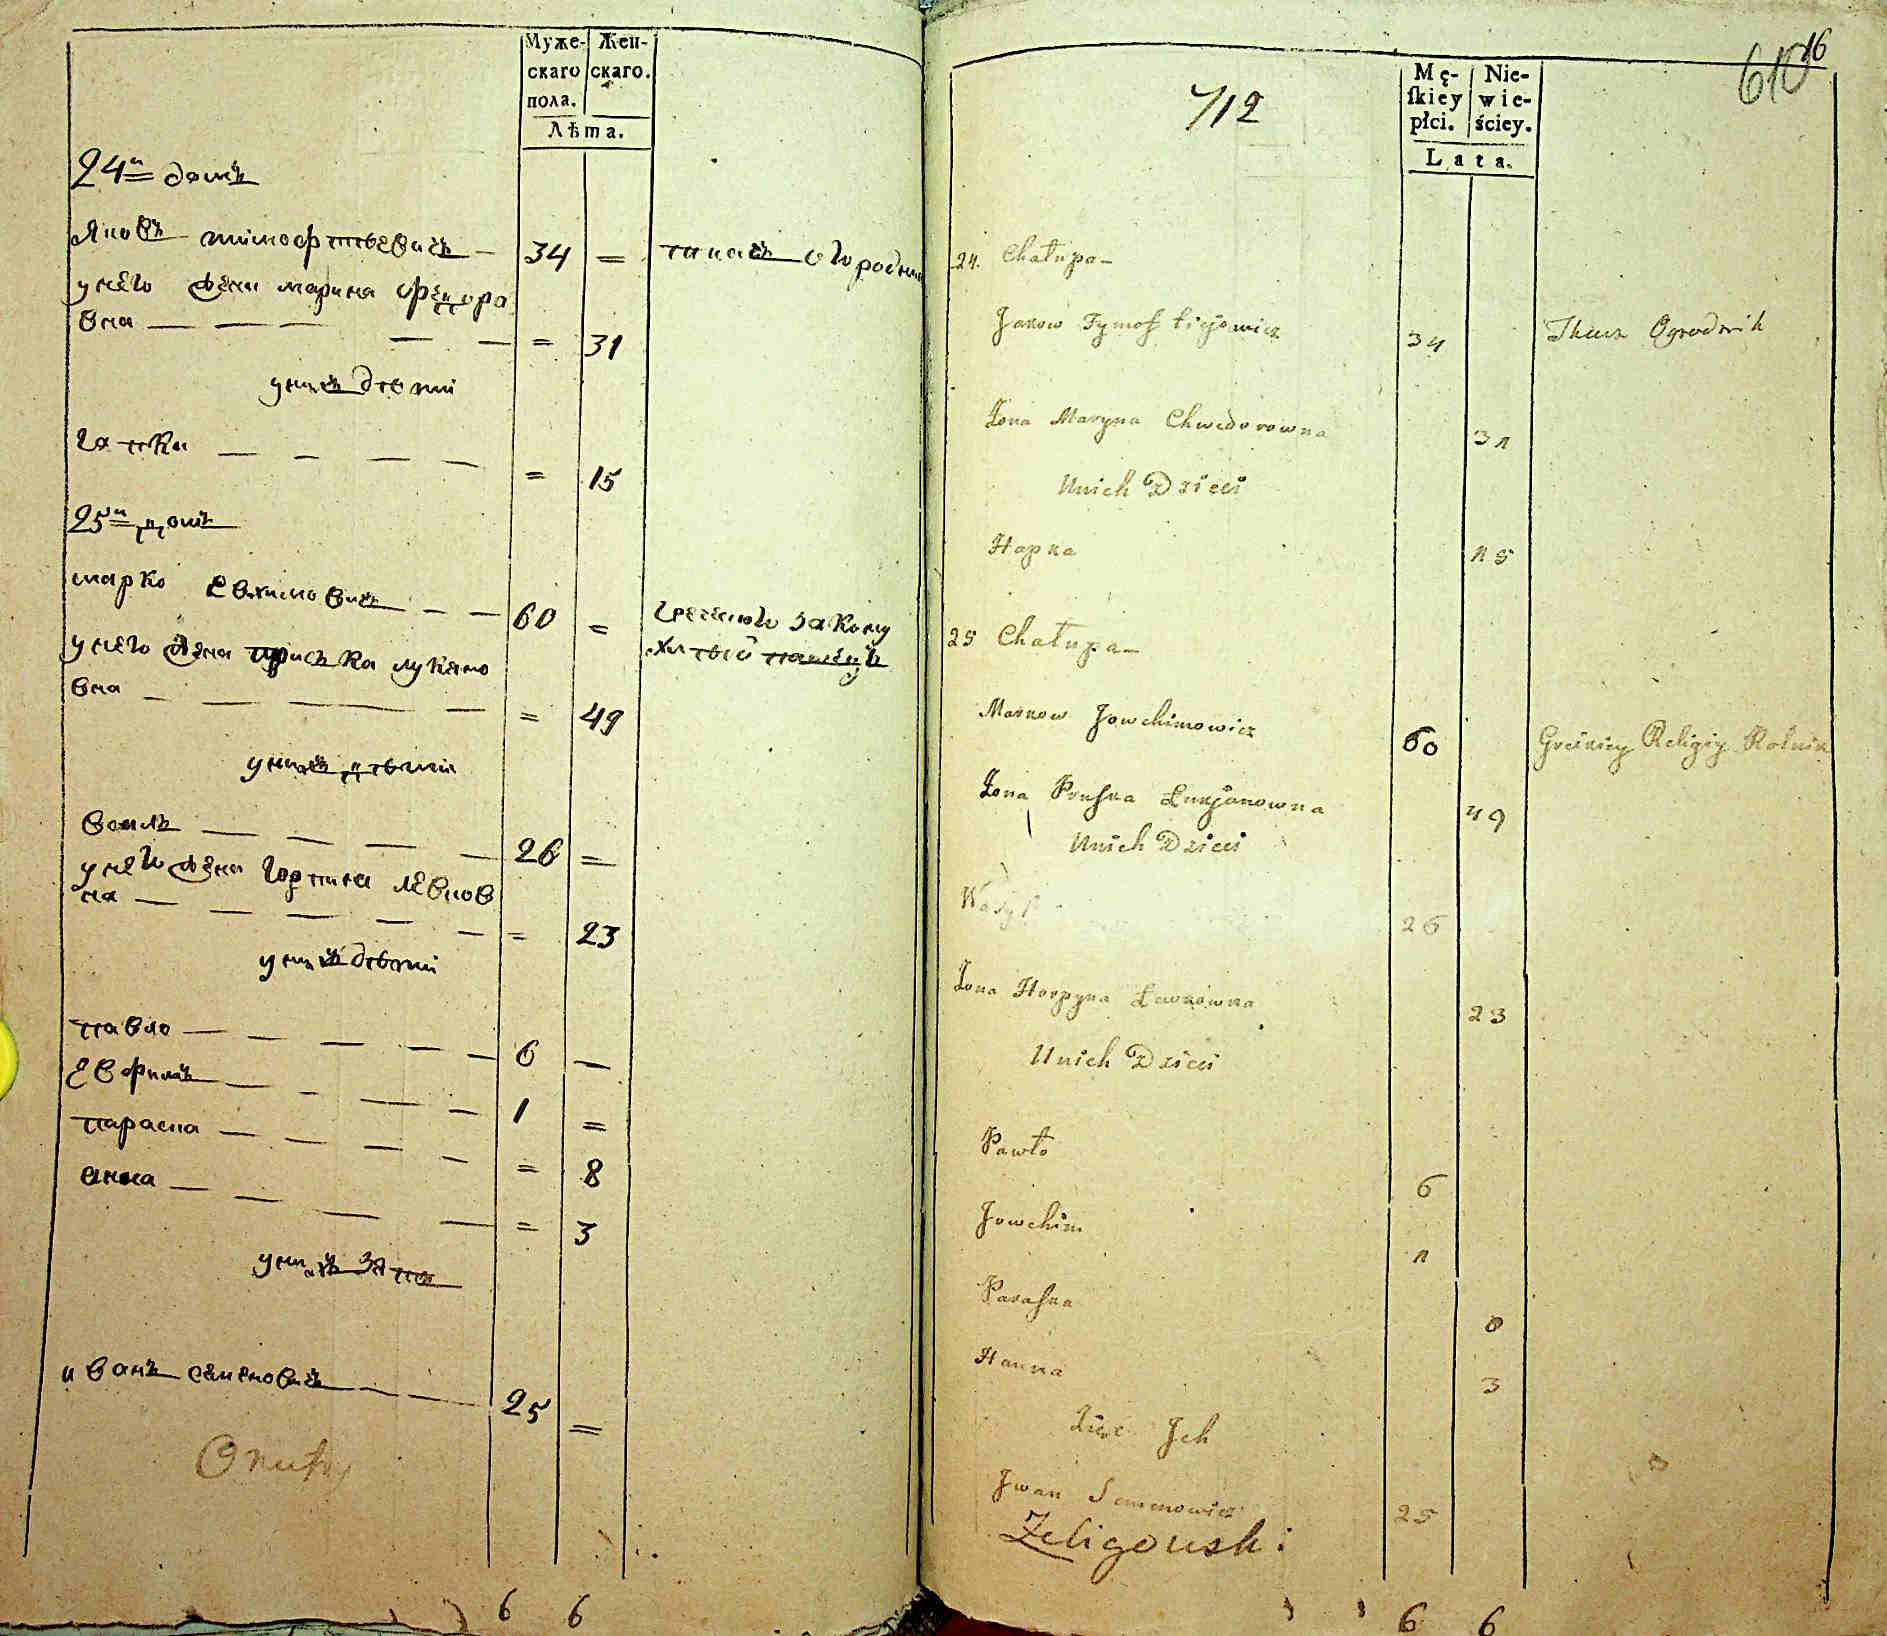 Муже-
скаго
пола.
Жен-
скаго.
Лѣта.
24й домъ
Яковъ Тимофтѣевичъ 34 = ткачъ огородник
у него жена Марина Федоро
вна = 31
у нихъ дѣти
Гапка = 15
25й домъ
Марко Евхимовичъ 60 = греческого закону
у него жена Приська Лукяно
вна = 49
у нихъ дѣти
Василь 26 =
у него жена Горпина Левков
на = 23
у нихъ дѣти
Павло 6 —
Евфимъ 1 =
Параска = 8
Анна = 3
у нихъ зять
Иванъ Семеновичъ 25 =
6 6
16
610
712
Mę-
skiey
płci.
Nie-
wie-
ściey.
Lata.
24. Chałupa
Jakow Tymoftiejowicz 34 Tkacz Ogrodnik
Żona Maryna Chwedorowna 31
Unich Dzieci
Hapka 15
25 Chałupa
Markow Jowchimowicz 60 Greckiey Religiy Rolnik
Żona Pryska Łukjanowna 49
Unich Dzieci
Wasyl 26
Żona Horpyna Lewkowna 23
Unich Dzieci
Pawło 6
Jowchim 1
Paraska 8
Hanna 3
Zięc Jch
Jwan Semenowicz 25
Zeligowski
6 6